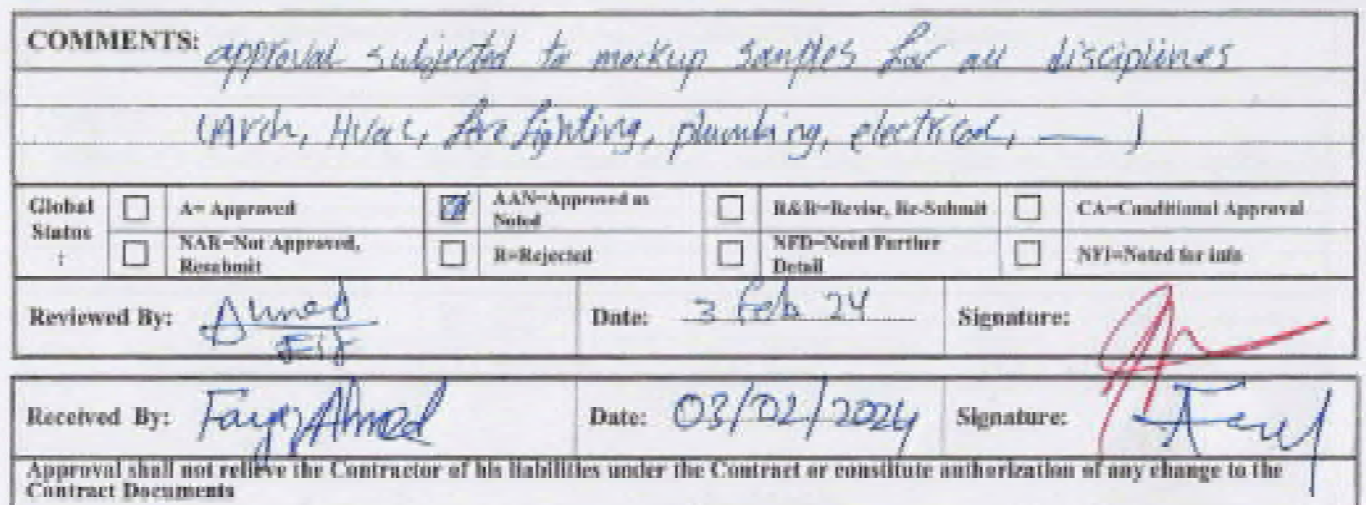 COMMENTS: approval subjected to mockup samples for all disciplines
(Arch, Hvac, fire fighting, plumbing, electrical, — )
Global Status : A= Approved AAN=Approved as Noted R&R=Revise, Re-Submit CA=Conditional Approval
NAR=Not Approved, Resubmit R=Rejected NFD=Need Further Detail NFI=Noted for info
Reviewed By: Ahmed Date: 3 Feb 24 Signature:
Received By: Ahmed Date: 03/02/2024 Signature:
Approval shall not relieve the Contractor of his liabilities under the Contract or constitute authorization of any change to the
Contract Documents